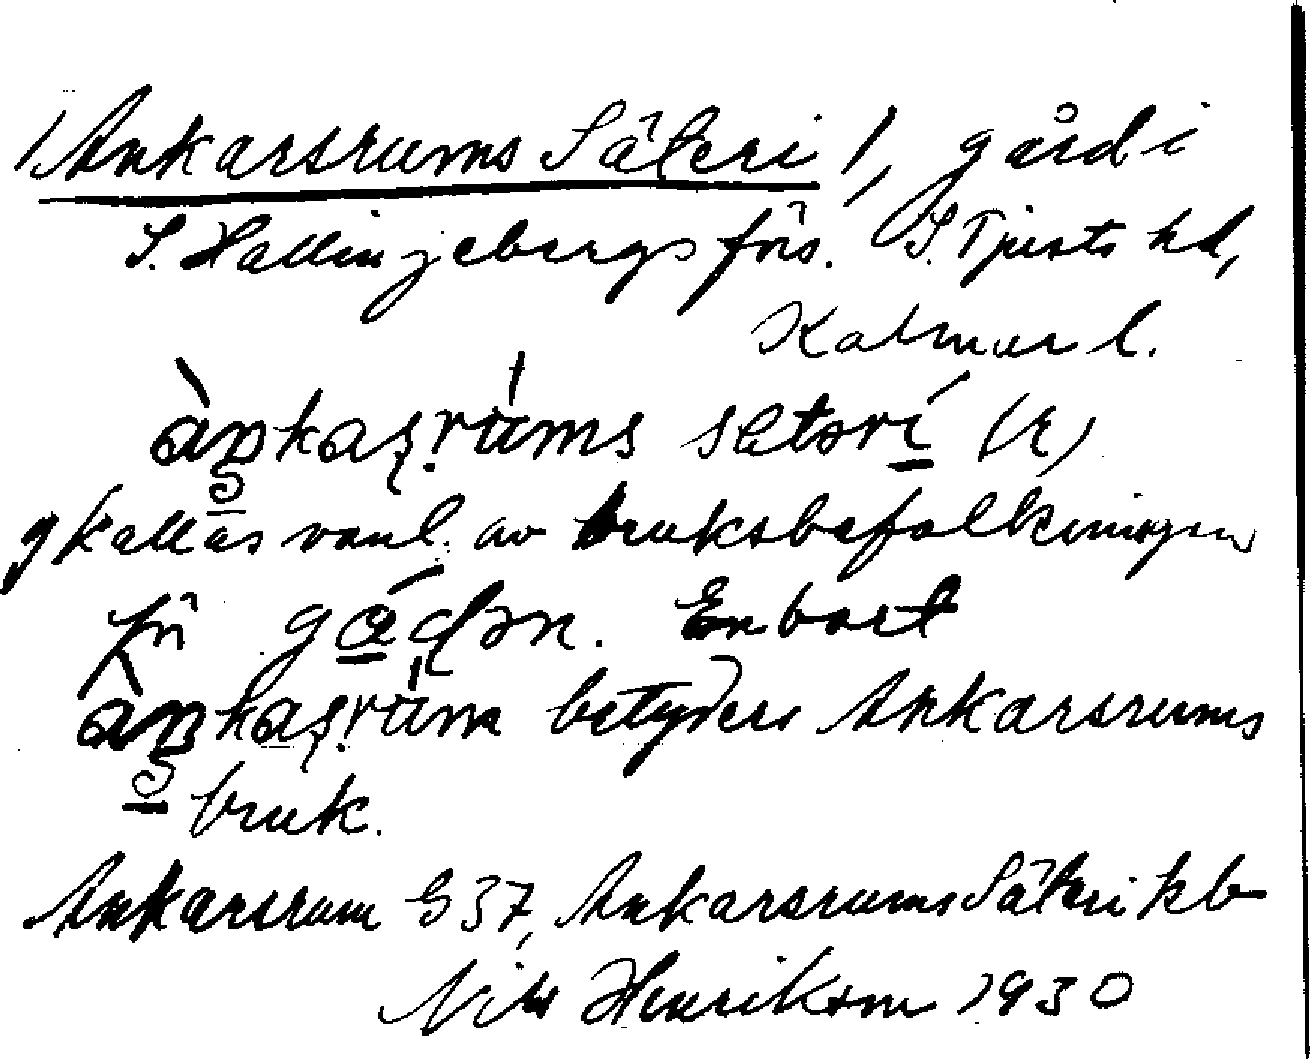 /Ankarsrums Säteri/, gård i
S. Hallingebergs förs. S. Tjusts hd,
Kalmar l.
sætərí (r)
kallas vanl. av bruksbefolkningen
för Enbart
betyder Ankarsrums
bruk.
Ankarsrum G 37, Ankarsrums Säteri kb
Nils Henrikson 1930